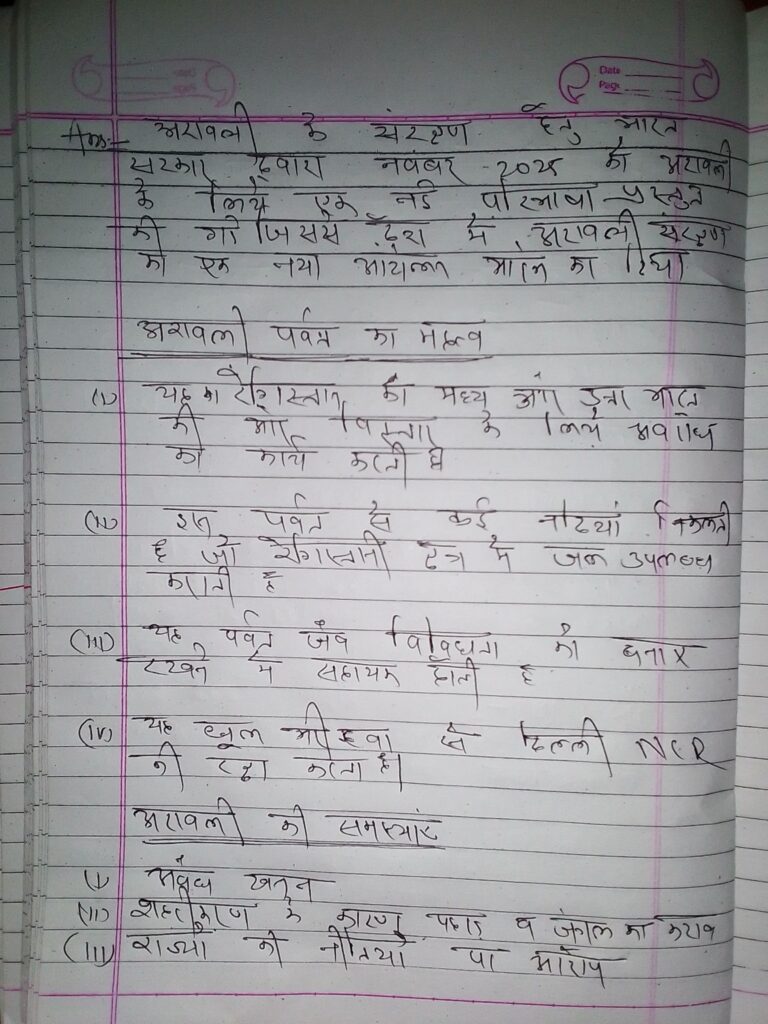 Date
Page
Ans:- अरावली के संरक्षण हेतु भारत
सरकार द्वारा नवंबर 2025 को अरावली
के लिये एक नई परिभाषा प्रस्तुत
की गयी जिससे देश में अरावली संरक्षण
को एक नया आंदोलन का दिया
अरावली पर्वत का महत्व
(i) यह रेगिस्तान को मध्य उत्तर भारत
की ओर विस्तार के लिये अवरोध
का कार्य करती है
(ii) इस पर्वत से कई नदियां निकलती
है जो रेगिस्तानी क्षेत्र में जल उपलब्ध
कराती है
(iii) यह पर्वत जैव विविधता को बनाए
रखने में सहायक होती है
(iv) यह धूल भरी हवा से दिल्ली NCR
की रक्षा करता है।
अरावली की समस्याएं
(i) अवैध खनन
(ii) शहरीकरण के कारण पहाड़ व जंगल का कटाव
(iii) राज्यों की नीतियों पर आरोप